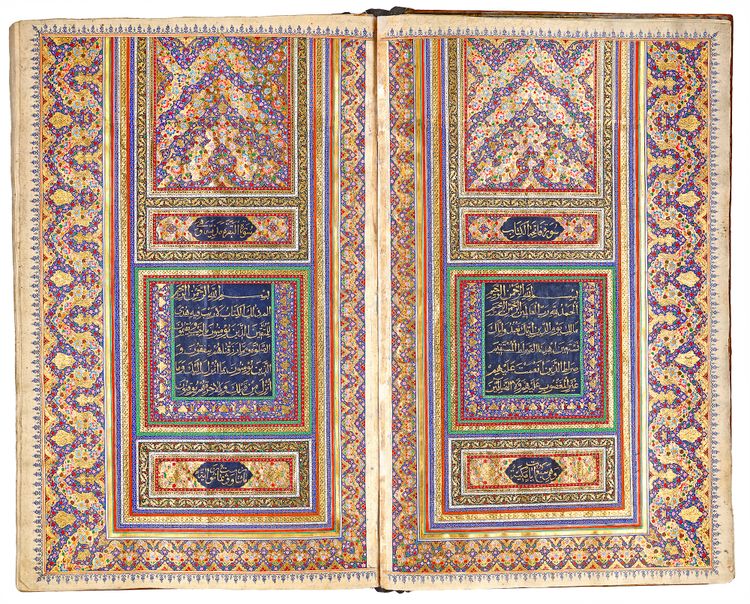 سورة فاتحة الكتاب
بسم الله الرحمن الرحيم
الحمد لله رب العالمين الرحمن الرحيم
مالك يوم الدين اياك نعبد واياك
نستعين اهدنا الصراط المستقيم
صراط الذين انعمت عليهم
غير المغضوب عليهم ولا الضالين
سورة البقرة
بسم الله الرحمن الرحيم
الم ذلك الكتاب لا ريب فيه هدى
للمتقين الذين يؤمنون بالغيب ويقيمون
الصلوة ومما رزقناهم ينفقون و
الذين يؤمنون بما انزل اليك وما
انزل من قبلك وبالاخرة هم يوقنون